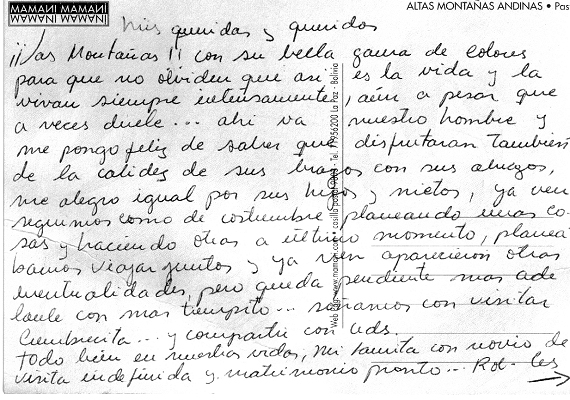 MAMANI MAMANI
MAMANI MAMANI
ALTAS MONTAÑAS ANDINAS • Pas
Mis queridas y queridos
¡¡Las Montañas!! con su bella gama de colores
para que no olviden que así es la vida y la
vivan siempre intensamente, aún a pesar que
a veces duele... ahi va nuestro hombre y
me pongo feliz de saber que disfrutaran también
de la calidez de sus brazos con sus abrazos,
me alegro igual por sus hijos y nietos, ya ven
seguimos como de costumbre planeando unas co-
sas y haciendo otras a último momento, planeá
bamos viajar juntos y ya ven aparecieron otras
eventualidades, pero queda pendiente mas ade
lante con mas tiempito... soñamos con visitar
Cumbrecita... y compartir con uds.
Todo bien en nuestras vidas, mi con novio de
visita indefinida y matrimonio pronto...
Web Page: www.mamani.com • casilla postal • Tel: 77956200 La Paz - Bolivia